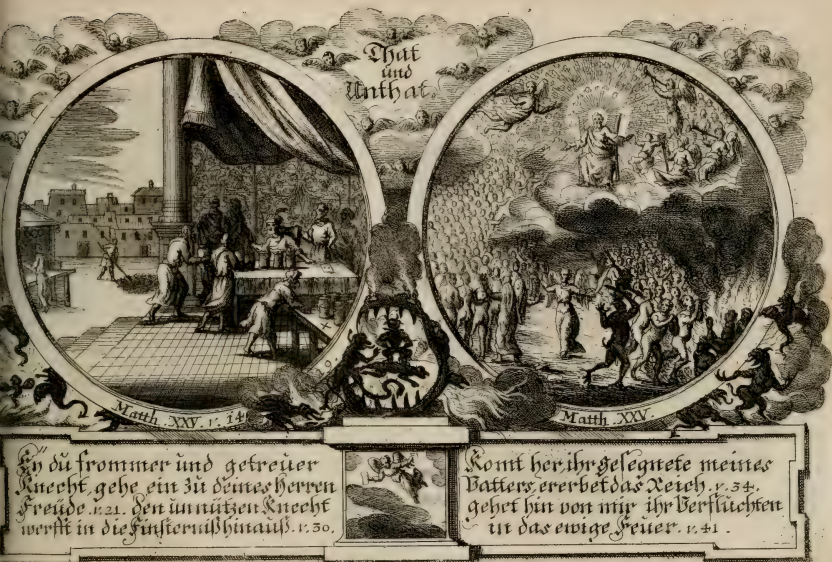 That
und
Unthat.
Matth. XXV. v. 14
Matth. XXV.
Ey du frommer und getreuer
Knecht, gehe ein zu deines Herren
Freude. v. 21. den unnützen Knecht
werfft in die Finsterniß hinauß. v. 30.
Komt her, ihr geseegnete meines
Vatters ererbet das Reich. v. 34.
gehet hin von mir ihr Verfluchten
in das ewige Feuer. v. 41.